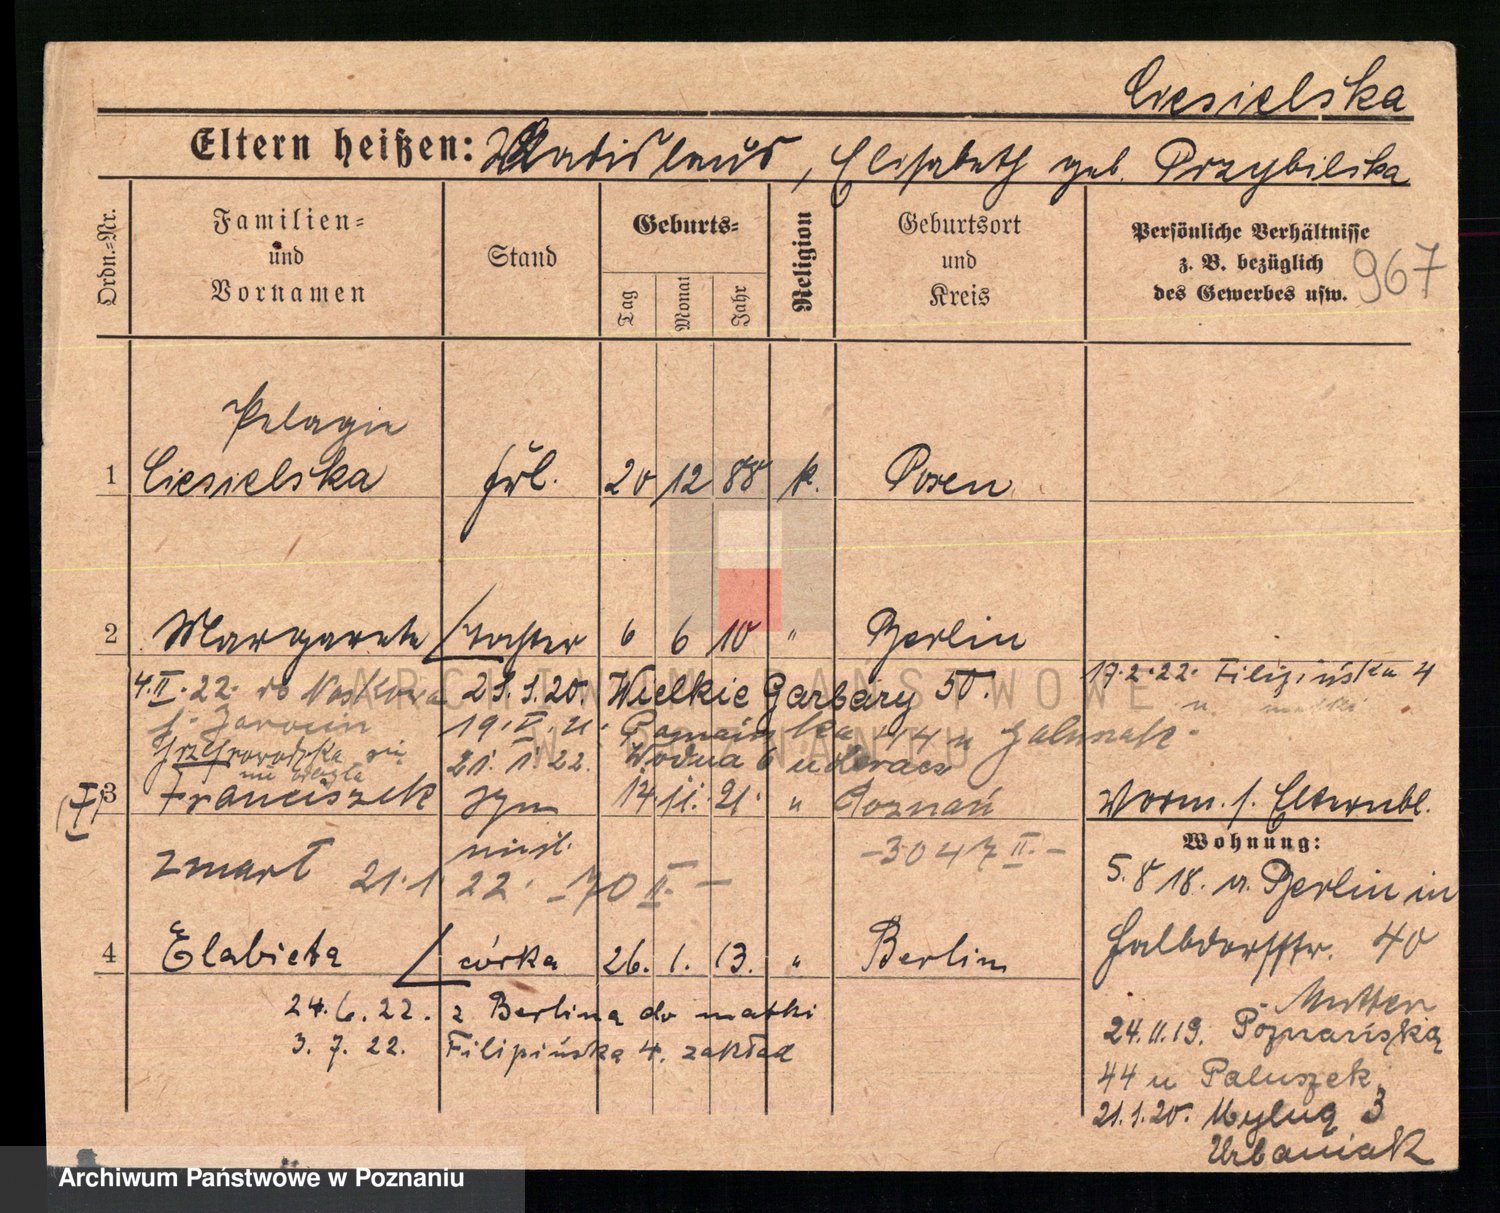 Ciesielska
Eltern heißen: Wladislaus, Elisabeth geb. Przybilska
Ordn.=Nr.
Familien=
und
Vornamen
Stand
Geburts=
Tag
Monat
Jahr
Religion
Geburtsort
und
Kreis
Persönliche Verhältnisse
z. B. bezüglich
des Gewerbes usw.
967
Pelagie
1 Ciesielska Frl. 20 12 88 k. Posen
2 Margarete Tochter 6 6 10 " Berlin
4.II.22. do 21.1.20. Wielkie Garbary 50. 17.2.22. Filipińska 4
19.V.21. 14 u
u. matki
21.1.22. Wodna 6
3 Franciszek syn 14 11. 21. " Poznań Vorm. s. Elternbl.
Wohnung:
zmarł 21.1.22. -70 II- -3047 II.-
5.8 18. v. Berlin in
4 Elżbieta córka 26. 1. 13. " Berlin
40
24.6.22. z Berlina do matki
Mutter
3. 7. 22. Filipińska 4. zakład
24.11.19. Poznańska
44 u Paluszek.
21.1.20. Mylna 3
Urbaniak
ARCHIWUM PAŃSTWOWE
W POZNANIU
Archiwum Państwowe w Poznaniu